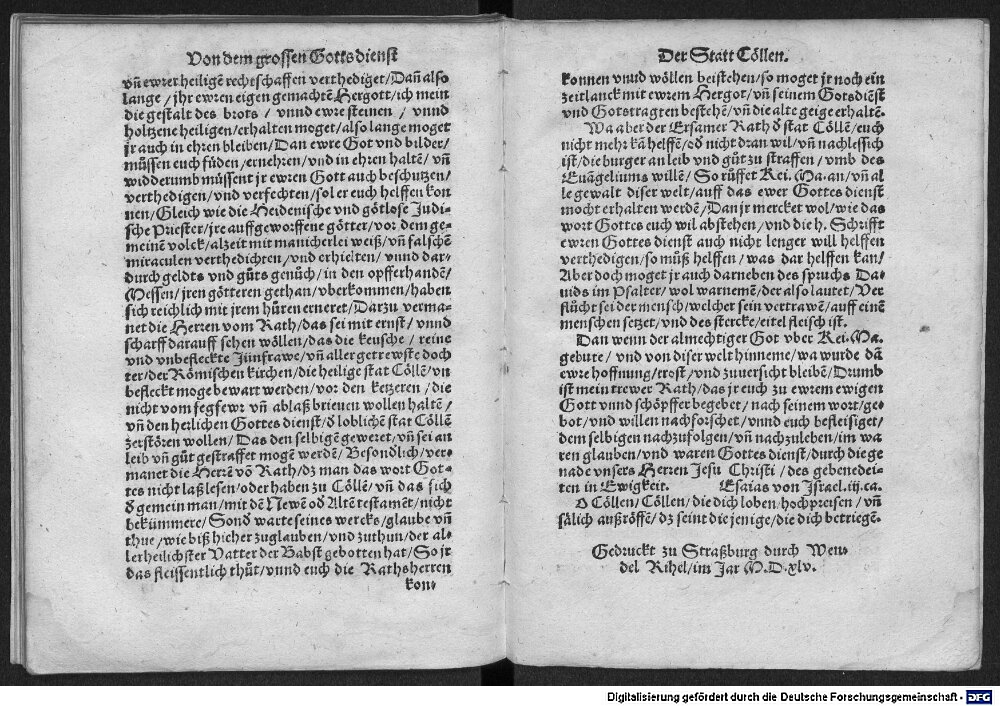 Von dem grossen Gottsdienst
vñ ewrer heiligẽ rechtschaffen verthediget/Dañ also
lange/jhr ewren eigen gemachtẽ Hergott/ich mein
die gestalt des brots/vnnd ewre steinen/vnnd
holtzene heiligen/erhalten moget/also lange moget
jr auch in ehren bleiben/Dan ewre Got vnd bilder/
müssen euch füden/ernehren/vnd in ehren haltẽ/vñ
widderumb müssent jr ewren Gott auch beschutzen/
verthedigen/vnd verfechten/sol er euch helffen kon
nen/Gleich wie die Heidenische vnd götlose Judi-
sche Priester/jre auffgeworffene götter/vor dem ge-
meinẽ volck/alzeit mit manicherlei weiß/vñ falschẽ
miraculen verthedichten/vnd erhielten/vnnd dar-
durch geldts vnd gůts genůch/in den opfferhandẽ/
Messen/jren götteren gethan/vberkommen/haben
sich reichlich mit jrem hůren erneret/Darzu verma-
net die Herren vom Rath/das sei mit ernst/vnnd
scharff darauff sehen wöllen/das die keusche/reine
vnd vnbefleckte Jünfrawe/vñ aller getrewste doch
ter/der Römischen kirchen/die heilige stat Cöllẽ/vn
befleckt moge bewart werden/vor den ketzeren/die
nicht vom fegfewr vñ ablaß brieuen wollen haltẽ/
vñ den herlichen Gottes dienst/ď loblichẽ stat Cöllẽ
zerstören wollen/Das den selbigẽ geweret/vñ sei an
leib vñ gůt gestraffet mogẽ werdẽ/Besondlich/ver-
manet die Herrẽ võ Rath/dz man das wort Got-
tes nicht laß lesen/oder haben zu Cöllẽ/vñ das sich
ď gemein man/mit dẽ Newẽ oď Altẽ testamẽt/nicht
bekümmere/Sonď warte seines wercks/glaube vñ
thue/wie biß hicher zuglauben/vnd zuthun/der al-
lerheilichster Vatter der Babst gebotten hat/So jr
das fleissentlich thůt/vnnd euch die Rathsherren
kon-
Der Statt Cöllen.
konnen vnnd wöllen beistehen/so moget jr noch ein
zeitlanck mit ewrem Hergot/vñ seinem Gotsdiẽst
vnd Gotstragten bestehẽ/vñ die alte geige erhaltẽ.
Wa aber der Ersamer Rath ď stat Cöllẽ/euch
nicht mehr kã helffẽ/oď nicht dran wil/vñ nachlessich
ist/die burger an leib vnd gůt zu straffen/vmb des
Euãgeliums willẽ/So růffet Kei. Ma. an/vñ al
le gewalt diser welt/auff das ewer Gottes dienst
mocht erhalten werdẽ/Dan jr mercket wol/wie das
wort Gottes euch wil abstehen/vnd die h. Schrifft
ewren Gottes dienst auch nicht lenger will helffen
verthedigen/so můß helffen/was dar helffen kan/
Aber doch moget jr auch darneben des spruchs Da-
uids im Psalter/wol warnemẽ/der also lautet/Ver
flücht sei der mensch/welcher sein vertrawẽ/auff einẽ
menschen setzet/vnd des stercke/eitel fleisch ist.
Dan wenn der almechtiger Got vber Kei. Ma.
gebute/vnd von diser welt hinneme/wa wurde dã
ewre hoffnung/trost/vnd zuuersicht bleibẽ/Drumb
ist mein trewer Rath/das jr euch zu ewrem ewigen
Gott vnnd schöpffer begebet/nach seinem wort/ge-
bot/vnd willen nachforschet/vnnd euch befleisiget/
dem selbigen nachzufolgen/vñ nachzuleben/im wa
ren glauben/vnd waren Gottes dienst/durch die ge
nade vnsers Herren Jesu Christi/des gebenedei-
ten in Ewigkeit. Esaias von Israel. iij. ca.
O Cöllen/Cöllen/die dich loben/hochpreisen/vñ
sälich außröffẽ/dz seint die jenige/die dich betriegẽ.
Gedruckt zu Straßburg durch Wen-
del Rihel/im Jar M.D.xlv.
Digitalisierung gefördert durch die Deutsche Forschungsgemeinschaft - DFG